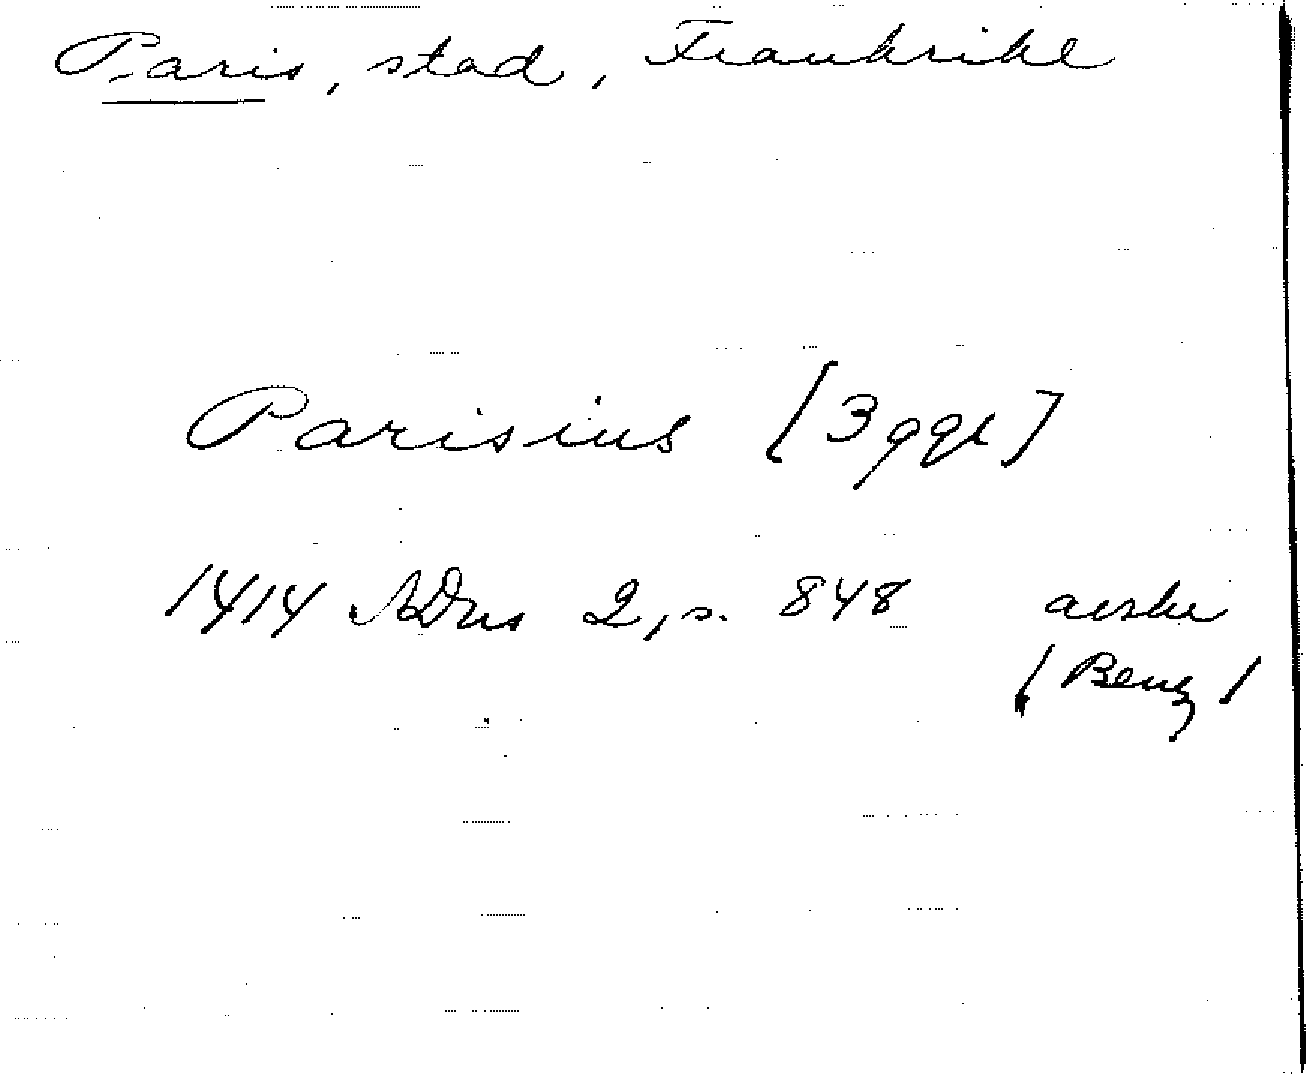 Paris, stad, Frankrike
Parisius [3 ggr]
1414 SDns 2, s. 848 avskr
(Benz)